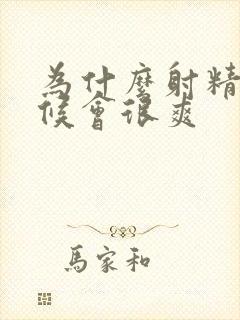 為什麼射精
候會很爽
馬家和